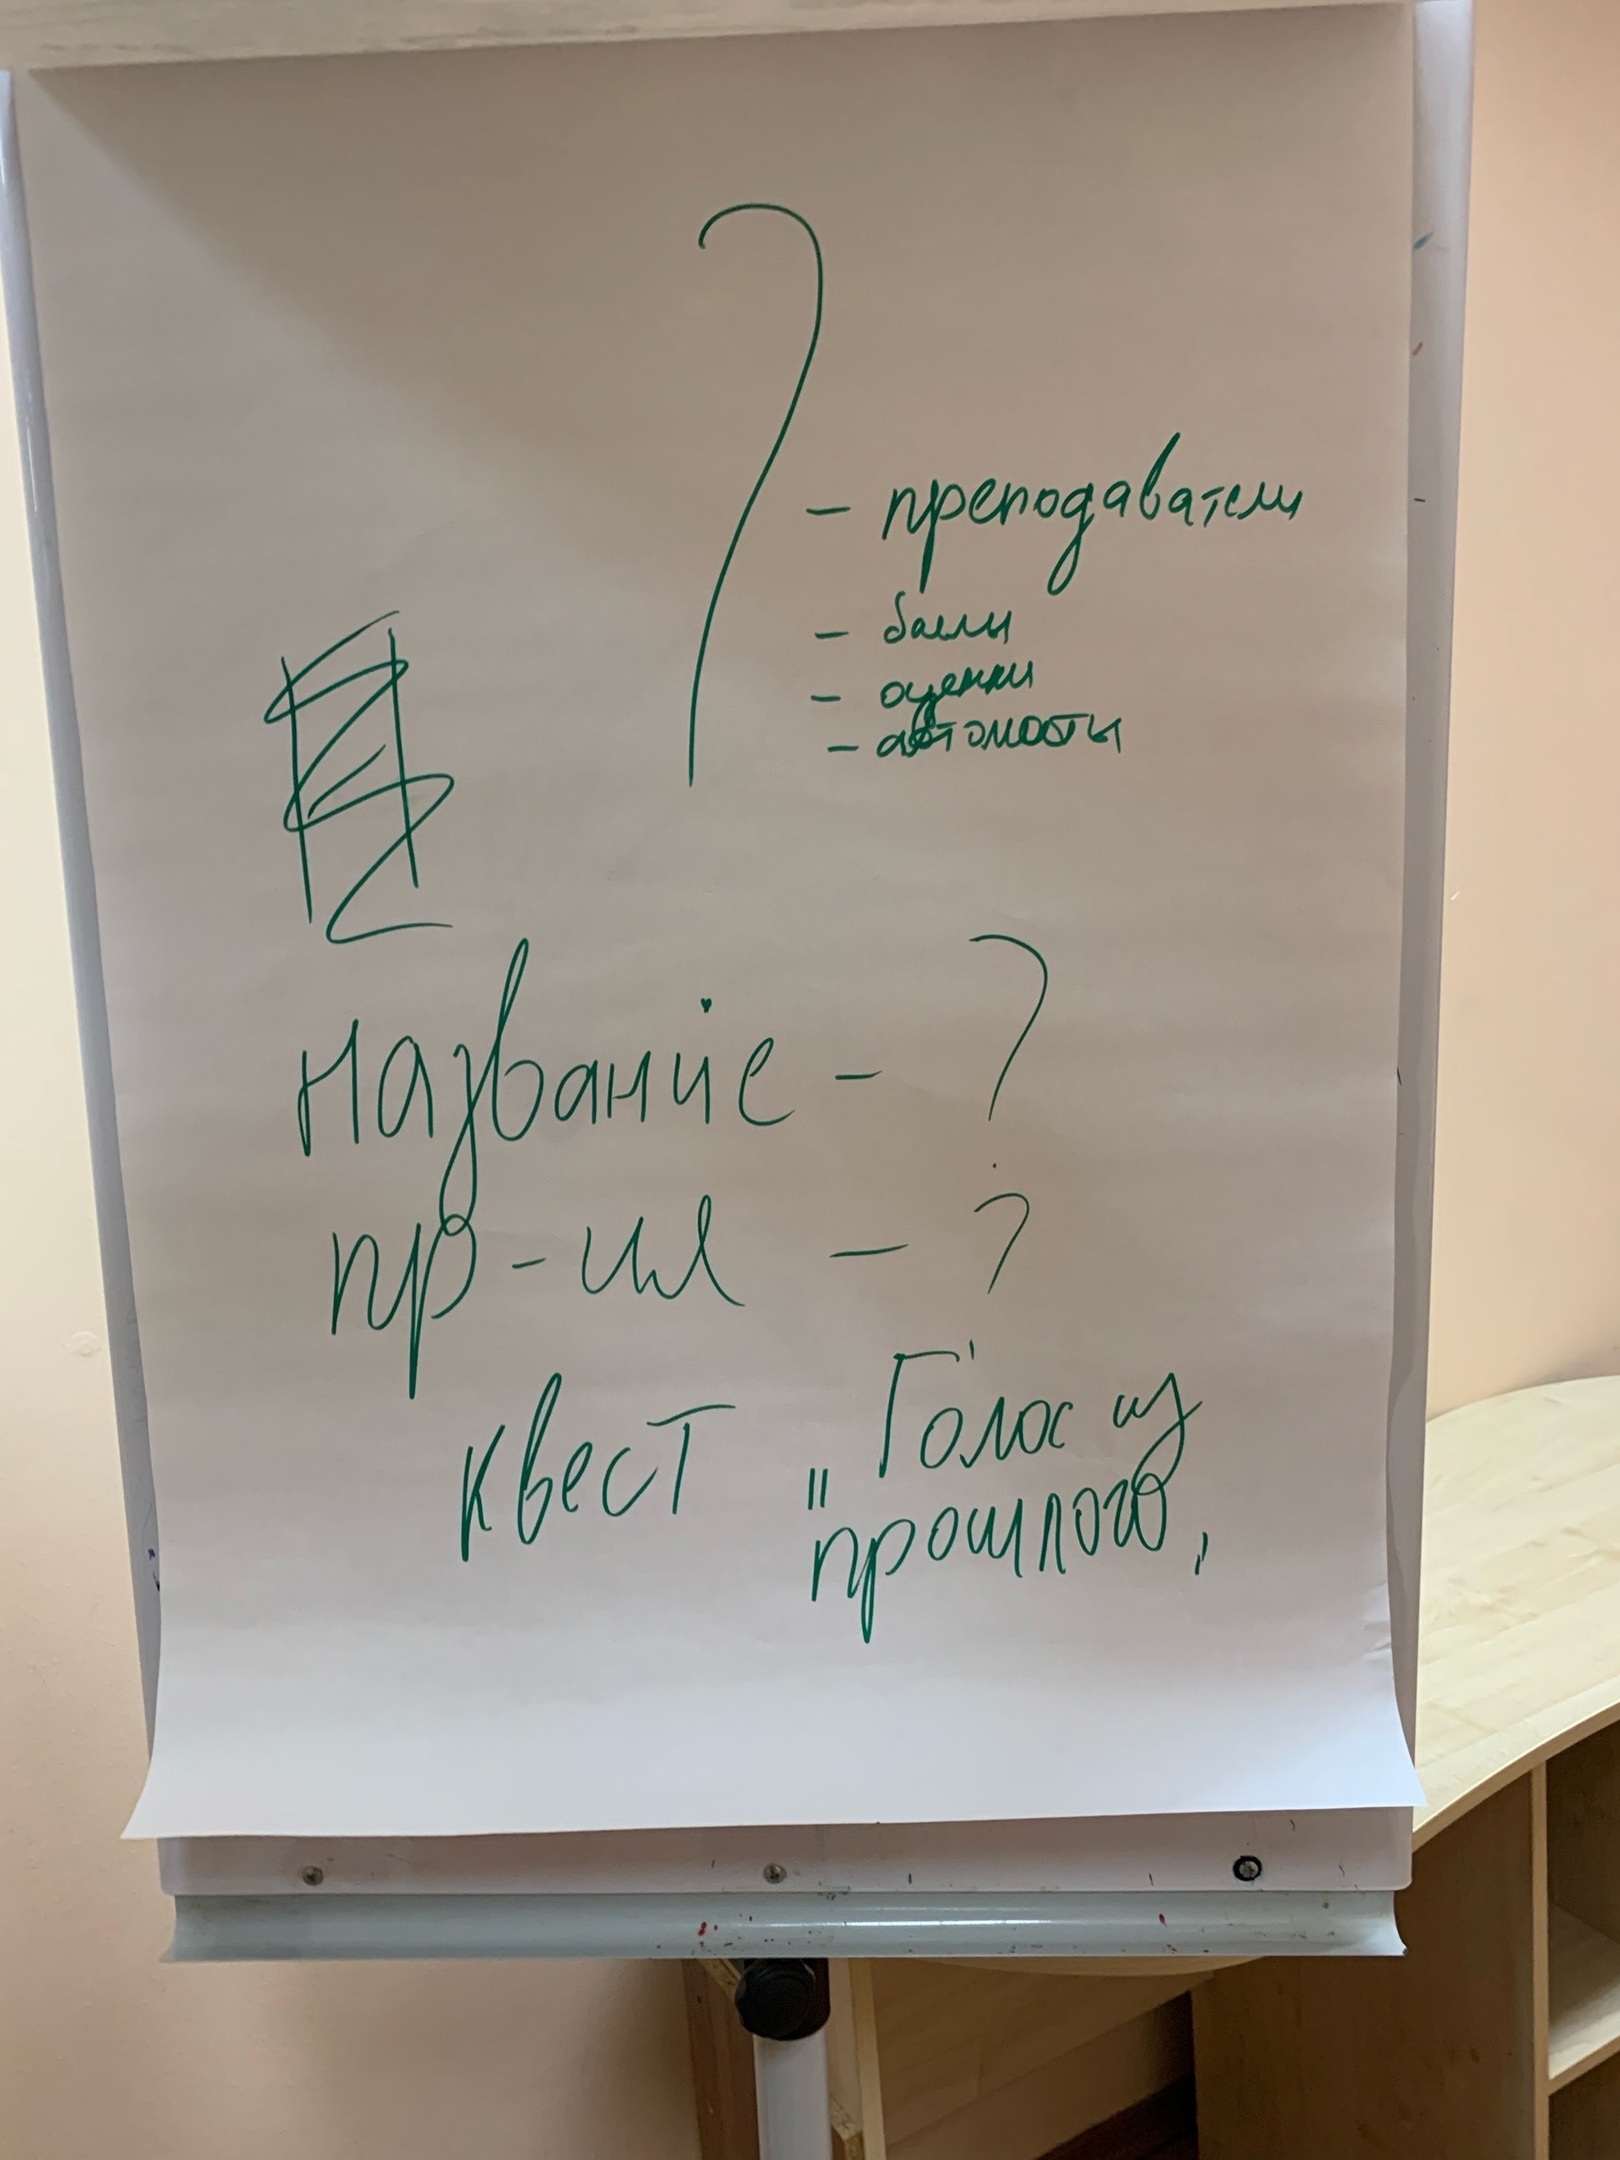 ?
- преподаватели
- баллы
- оценки
- автоматы
название - ?
пр-ия - ?
квест "Голос из
прошлого"